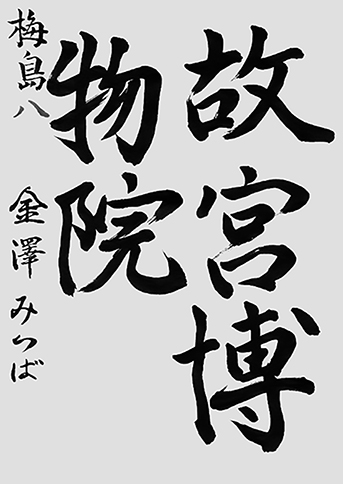 故宮博
物院
梅島八 金澤みつば